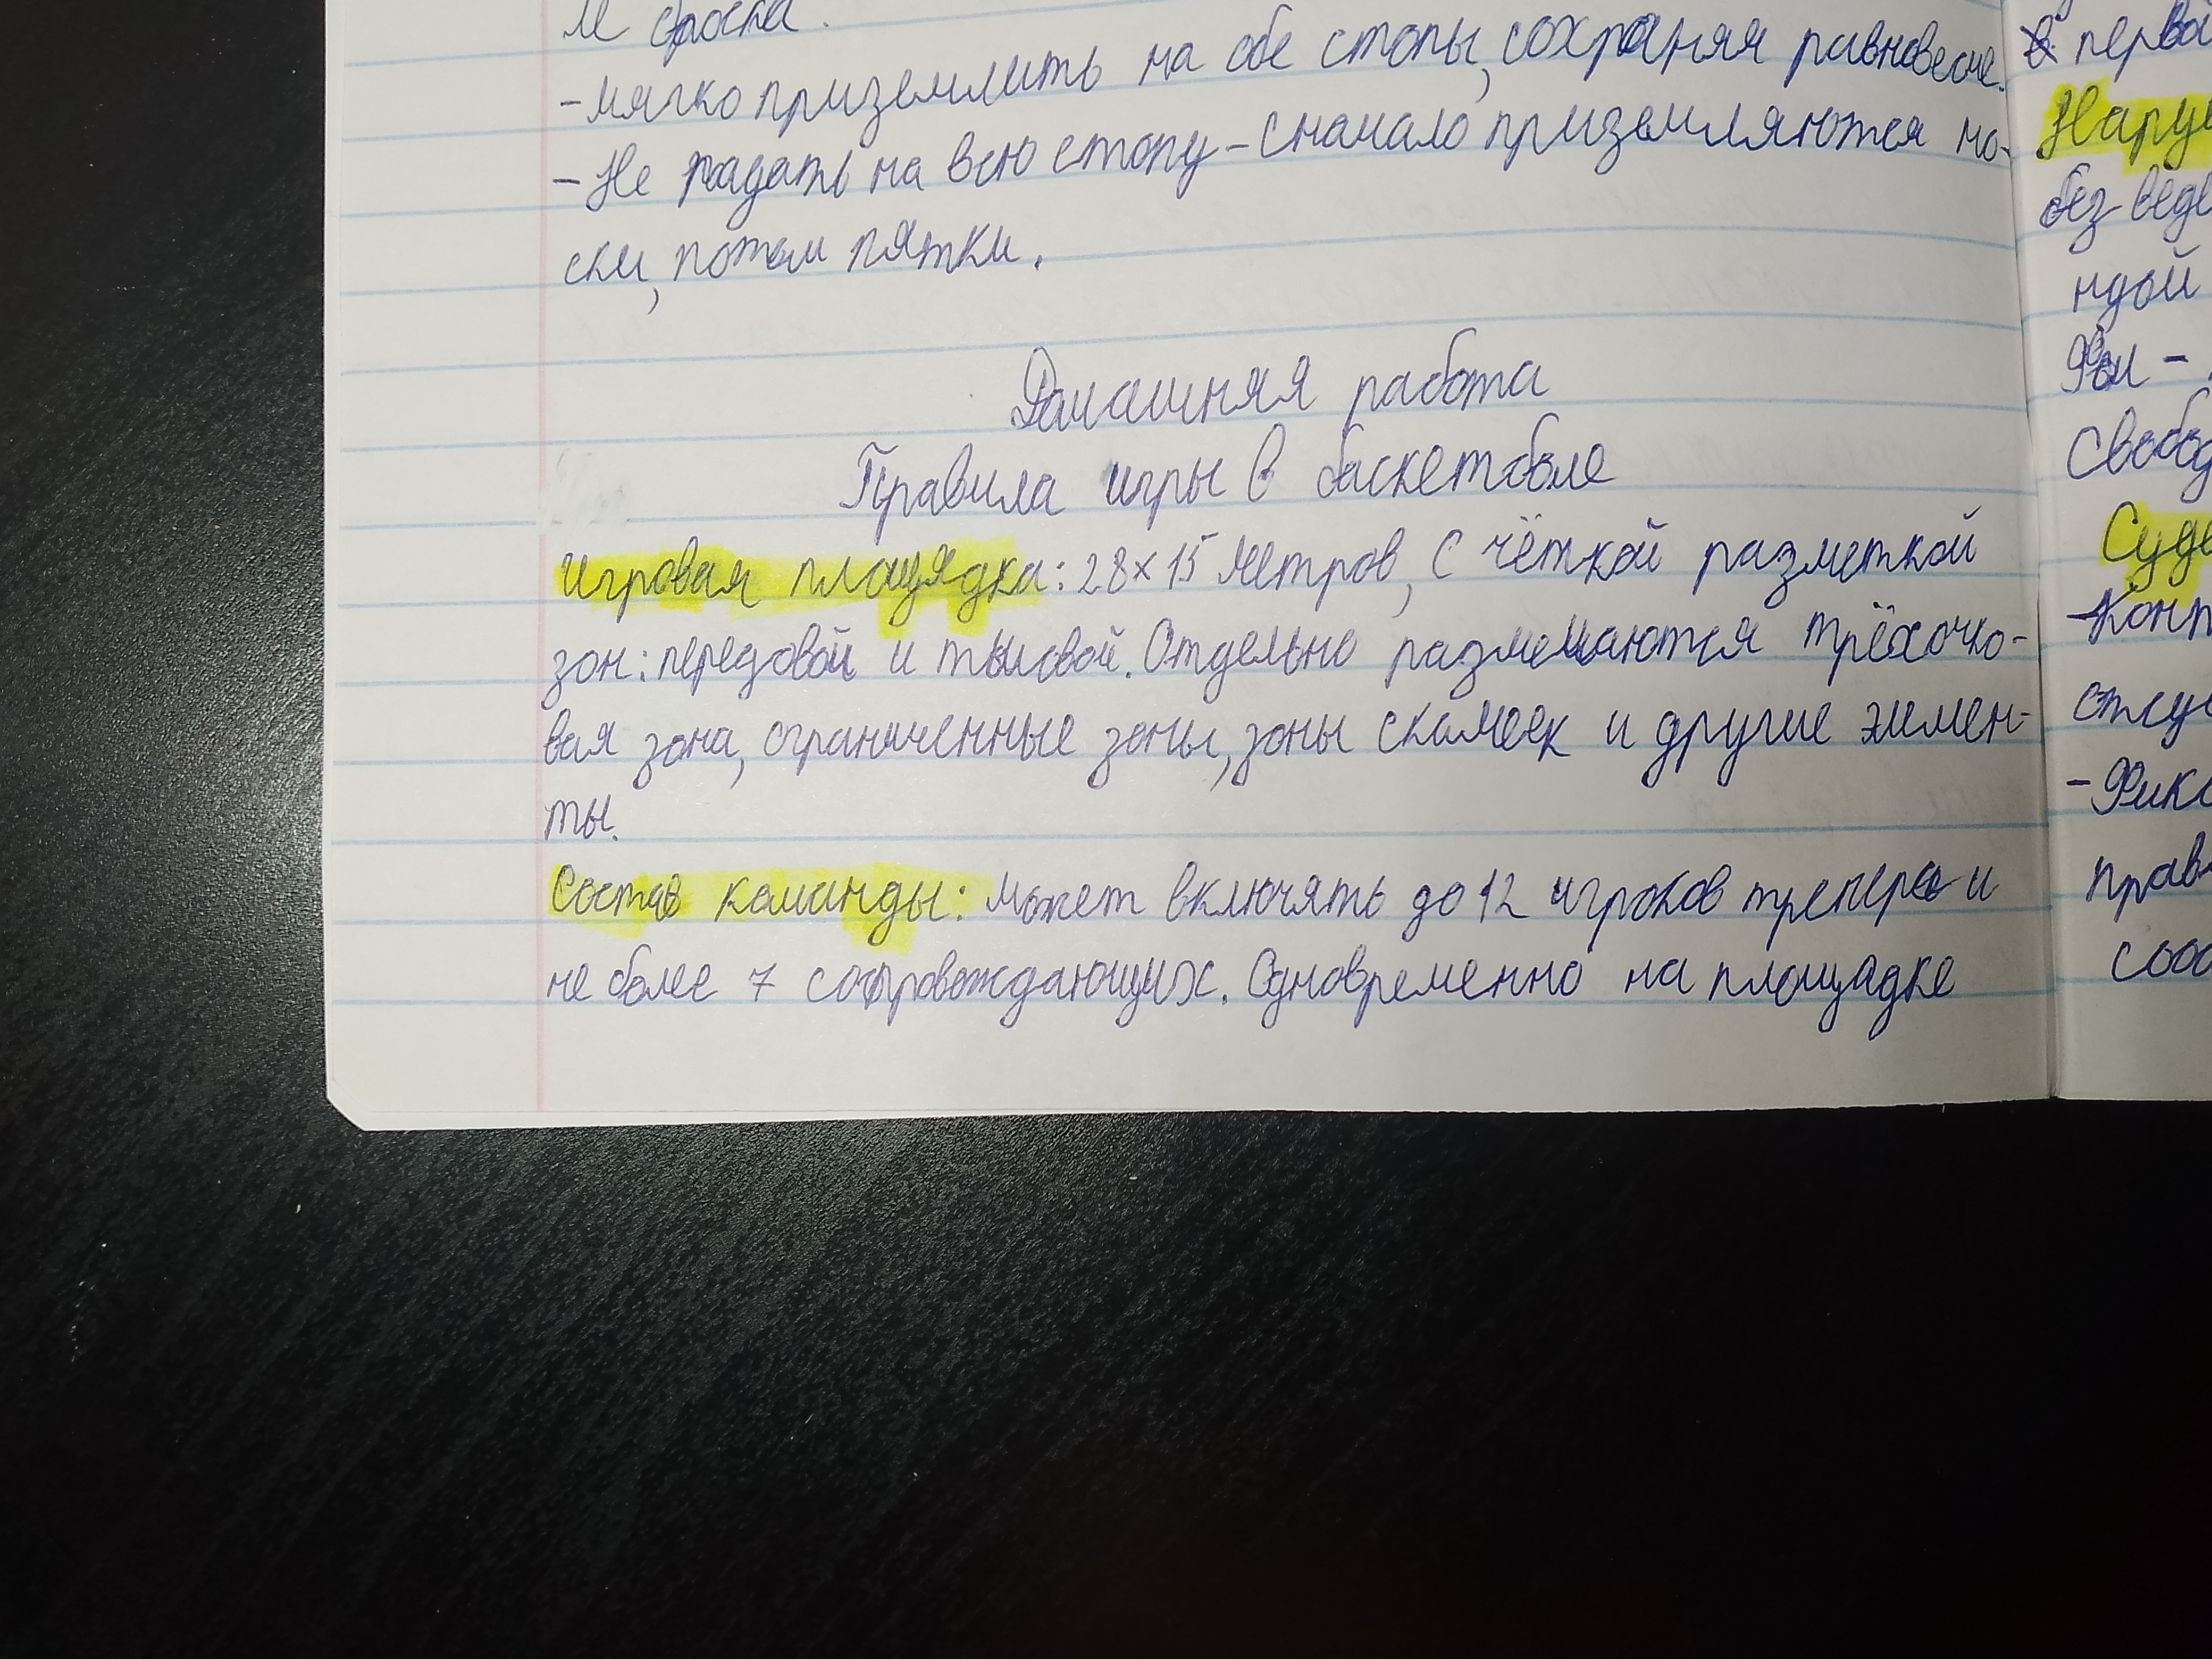 м броска.
-мягко приземлить на обе стопы, сохраняя равновесие.
-Не падать на всю стопу-сначало приземляются но-
ски, потом пятки.
Домашняя работа
Правила игры в баскетболе
Игровая площядка: 28×15 Метров, с чёткой разметкой
зон: передовой и тыловой. Отдельно размещаются трёхочко-
вая зона, ограниченные зоны, зоны скамеек и другие элемен-
ты.
Состав команды: Может включять до 12 игроков тренера и
не более 7 сопровождающих. Одновременно на площадке
первой
Нару
без веде
ндой
Фол -
Свобод
Суде
-Конт
отсу
-Фикс
прав
сооб